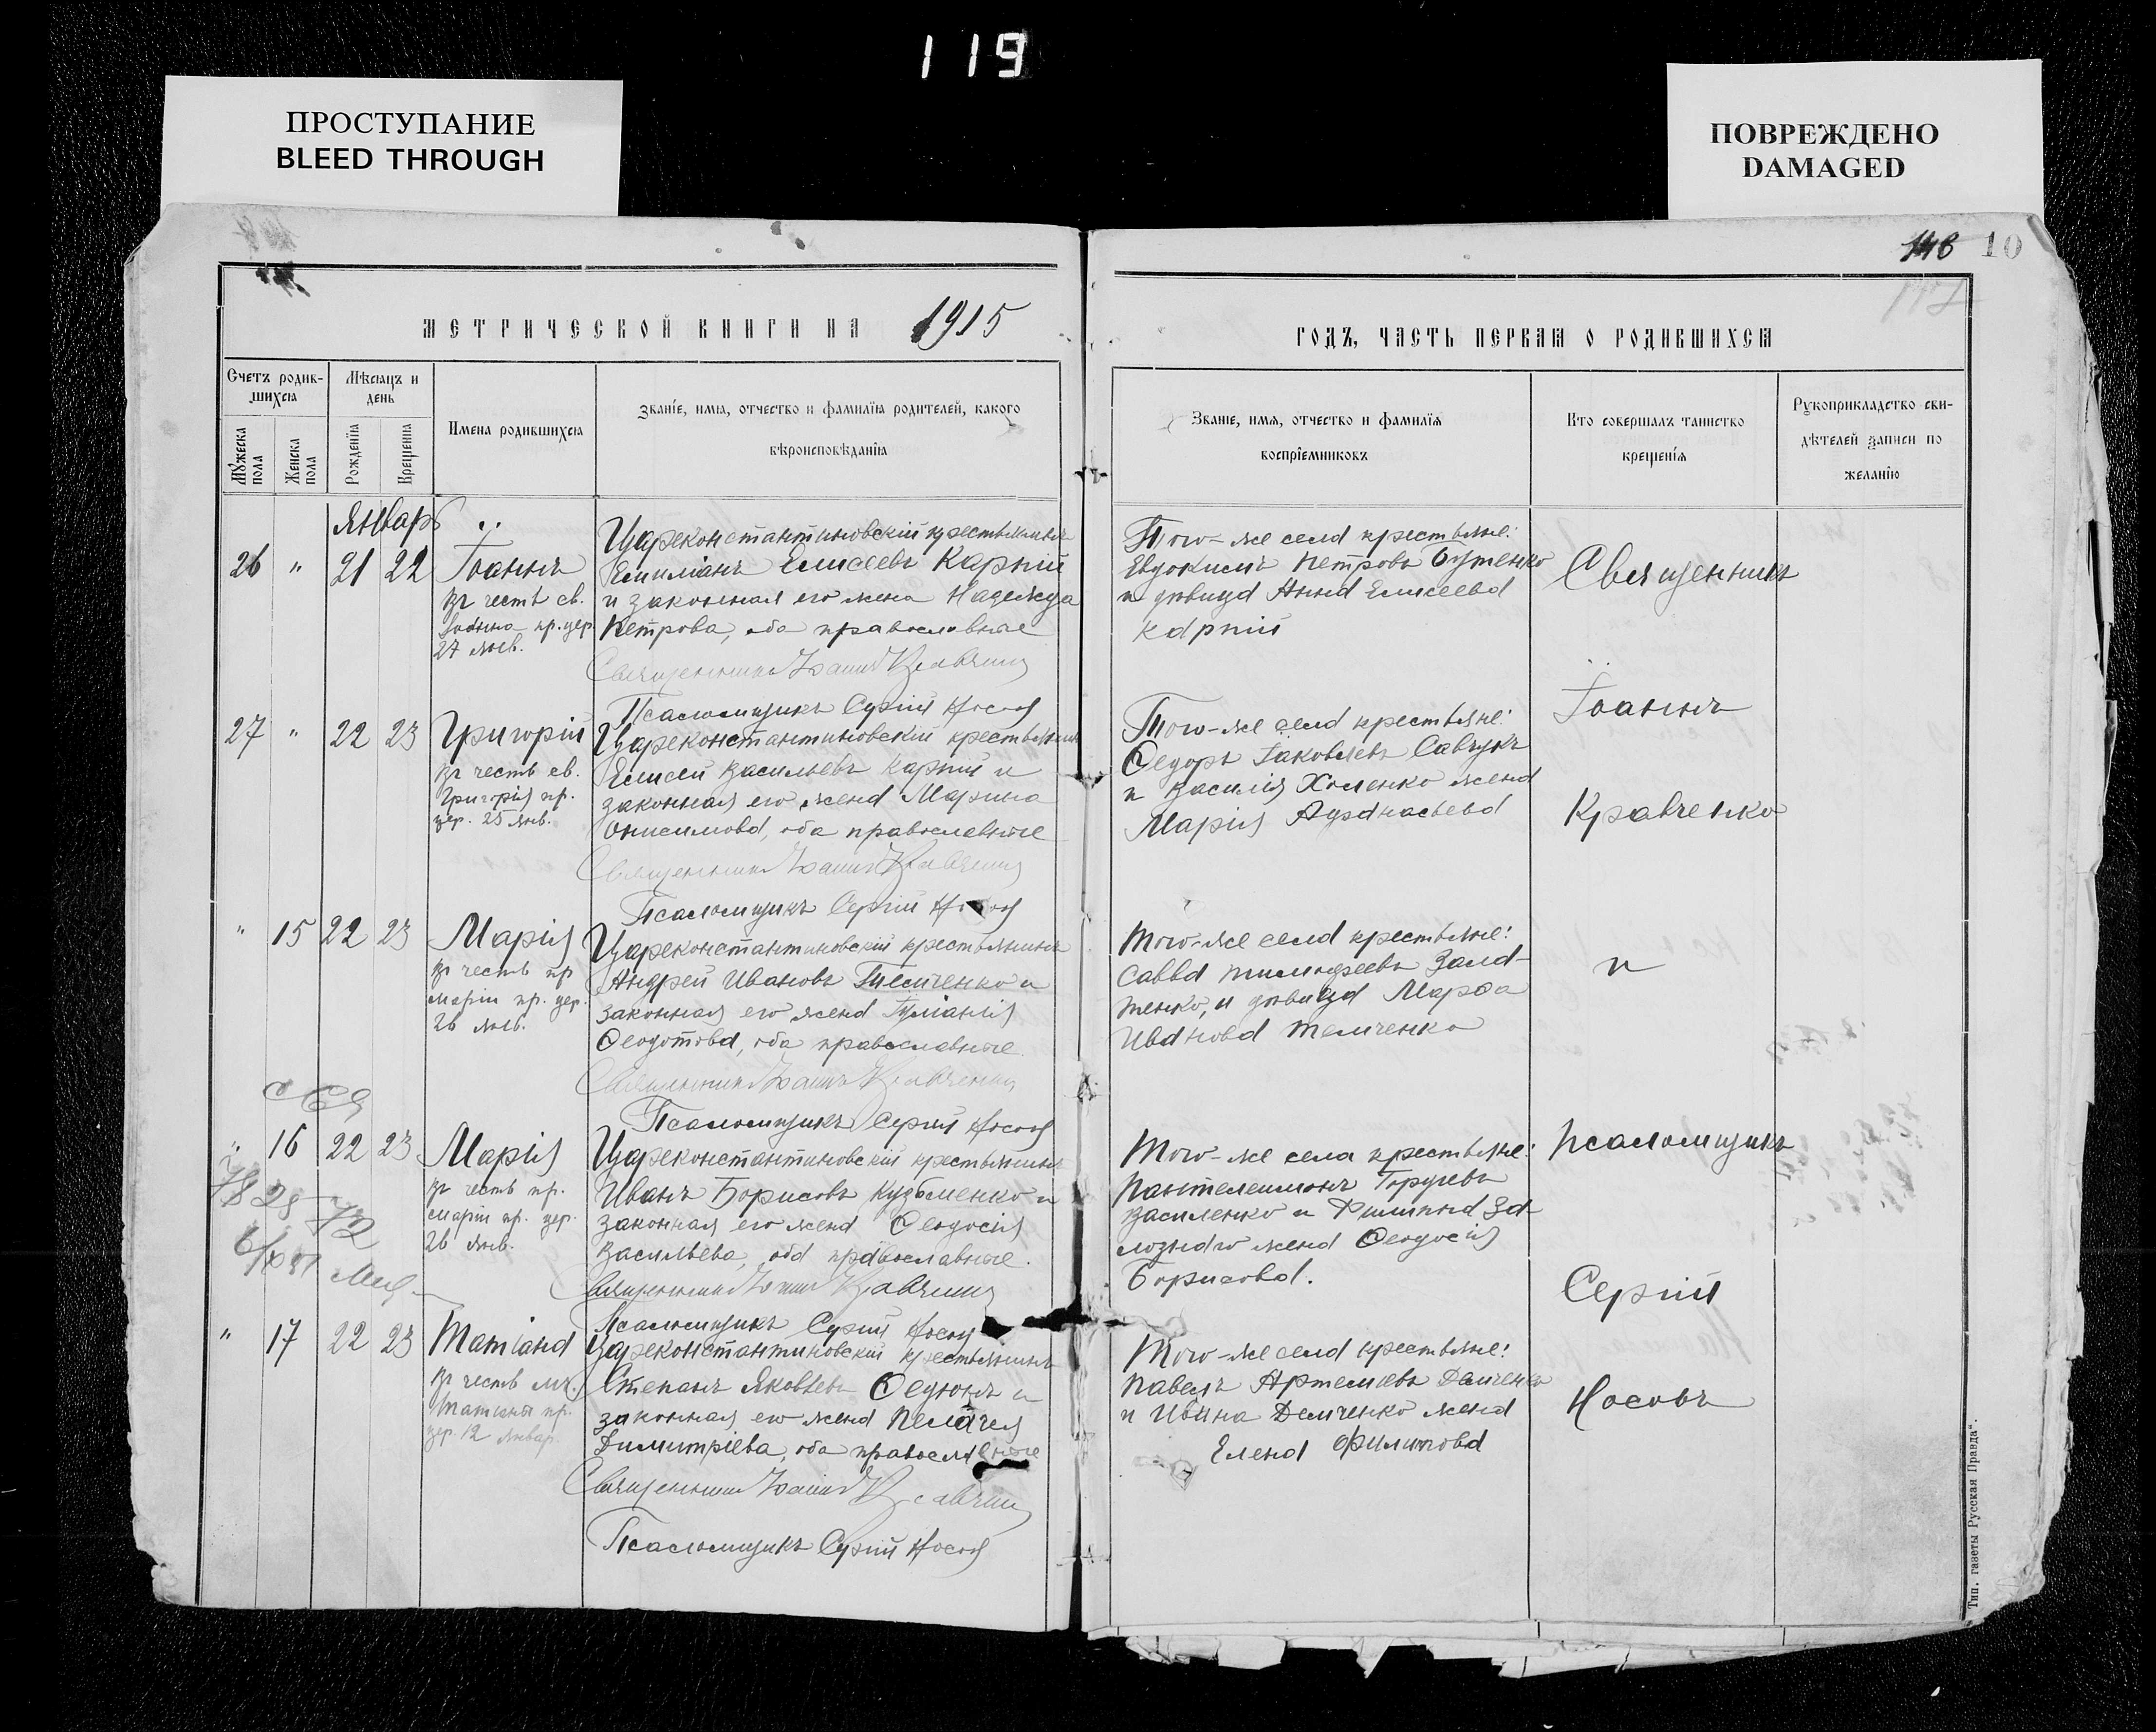 119
ПРОСТУПАНИЕ
BLEED THROUGH
ПОВРЕЖДЕНО
DAMAGED
148 10
117
МЕТРИЧЕСКОЙ КНИГИ НА 1915
Счетъ родив-
шихся
Мѣсяцъ и
день
Имена родившихся
Званіе, имя, отчество и фамилія родителей, какого
вѣроисповѣданія
Мужеска пола
Женска пола
Рожденія
Крещенія
Январь
26 " 21 22
Іоаннъ
въ честь св.
Іоанна пр. цер.
27 янв.
Цареконстантиновскій крестьянинъ
Емиліанъ Елисеевъ Карпій
и законная его жена Надежда
Петрова, оба православные
Священникъ Іоаннъ Кравченко
Псаломщикъ Сергій Носовъ
27 " 22 23
Григорій
въ честь св.
Григорія пр.
цер. 25 янв.
Цареконстантиновскій крестьянинъ
Елисей Васильевъ Карпій и
законная его жена Марина
Онисимова, оба православные
Священникъ Іоаннъ Кравченко
Псаломщикъ Сергій Носовъ
" 15 22 23
Марія
въ честь пр
Маріи пр. цер.
26 янв.
Цареконстантиновскій крестьянинъ
Андрей Ивановъ Темченко и
законная его жена Іуліанія
Ѳеодотова, оба православные
Священникъ Іоаннъ Кравченко
Псаломщикъ Сергій Носовъ
" 16 22 23
Марія
въ честь пр.
Маріи пр. цер.
26 янв.
Цареконстантиновскій крестьянинъ
Иванъ Борисовъ Кузьменко и
законная его жена Ѳеодосія
Васильева, оба православные.
Священникъ Іоаннъ Кравченко
Псаломщикъ Сергій Носовъ
" 17 22 23
Татіана
въ честь мч.
Татіаны пр.
цер. 12 январ.
Цареконстантиновскій крестьянинъ
Степанъ Яковлевъ и
законная его жена Пелагея
Димитріева, оба православные
Священникъ Іоаннъ Кравченко
Псаломщикъ Сергій Носовъ
ГОДЪ, ЧАСТЬ ПЕРВАЯ О РОДИВШИХСЯ
Званіе, имя, отчество и фамилія
воспріемниковъ
Кто совершалъ таинство
крещенія
Рукоприкладство сви-
дѣтелей записи по
желанію
Того-же села крестьяне:
Евдокимъ Петровъ Бутенко
и дѣвица Анна Елисеева
Карпій
Того-же села крестьяне:
Ѳедоръ Іаковлевъ Савчукъ
и Василія Хоменко жена
Марія
Того-же села крестьяне:
Савва Тимофеевъ Запа-
тенко, и дѣвица Марѳа
Иванова Темченко
Того-же села крестьяне:
Пантелеимонъ
Василенко и Филиппа За-
жена Ѳеодосія
Борисова.
Того-же села крестьяне:
Павелъ Артемиевъ Демченко
и Ивана Демченко жена
Елена Филипова
Священникъ
Іоаннъ
Кравченко
и
псаломщикъ
Сергій
Носовъ
Тип. газеты Русская Правда".